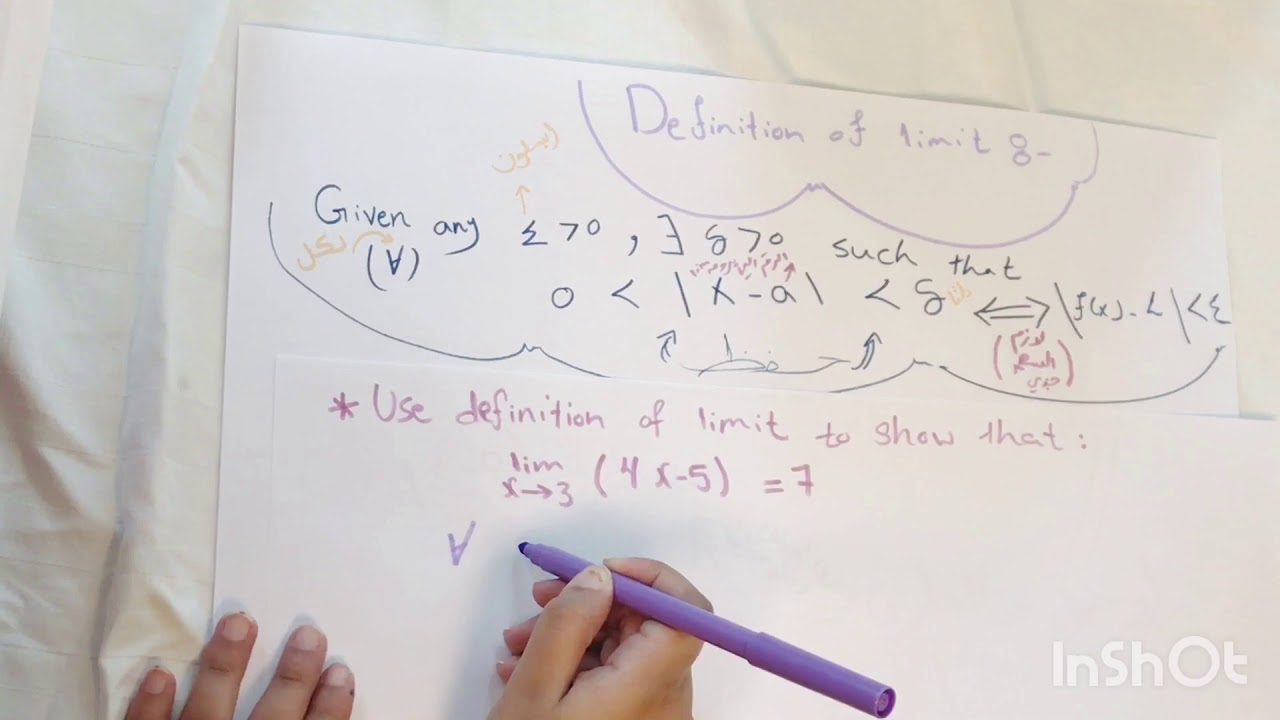 Definition of limit 8-
ابسلون
↑
Given any ε > 0 , ∃ δ > 0 such that
لكل (∀)
0 < |x - a| < δ ⟺ |f(x) - L| < ε
دلتا
* Use definition of limit to show that :
lim (4x-5) = 7
x→3
∀
InShOt